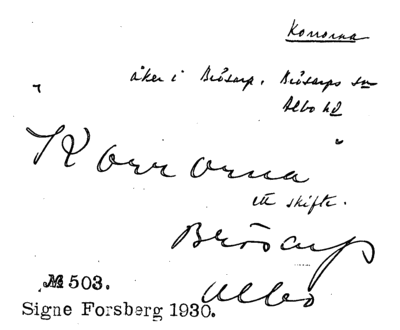 Korrorna
åker i Brösarp, Brösarps sn
Albo hd
"Korrorna"
ett skifte.
Brösarp
Albo
№ 503.
Signe Forsberg 1930.